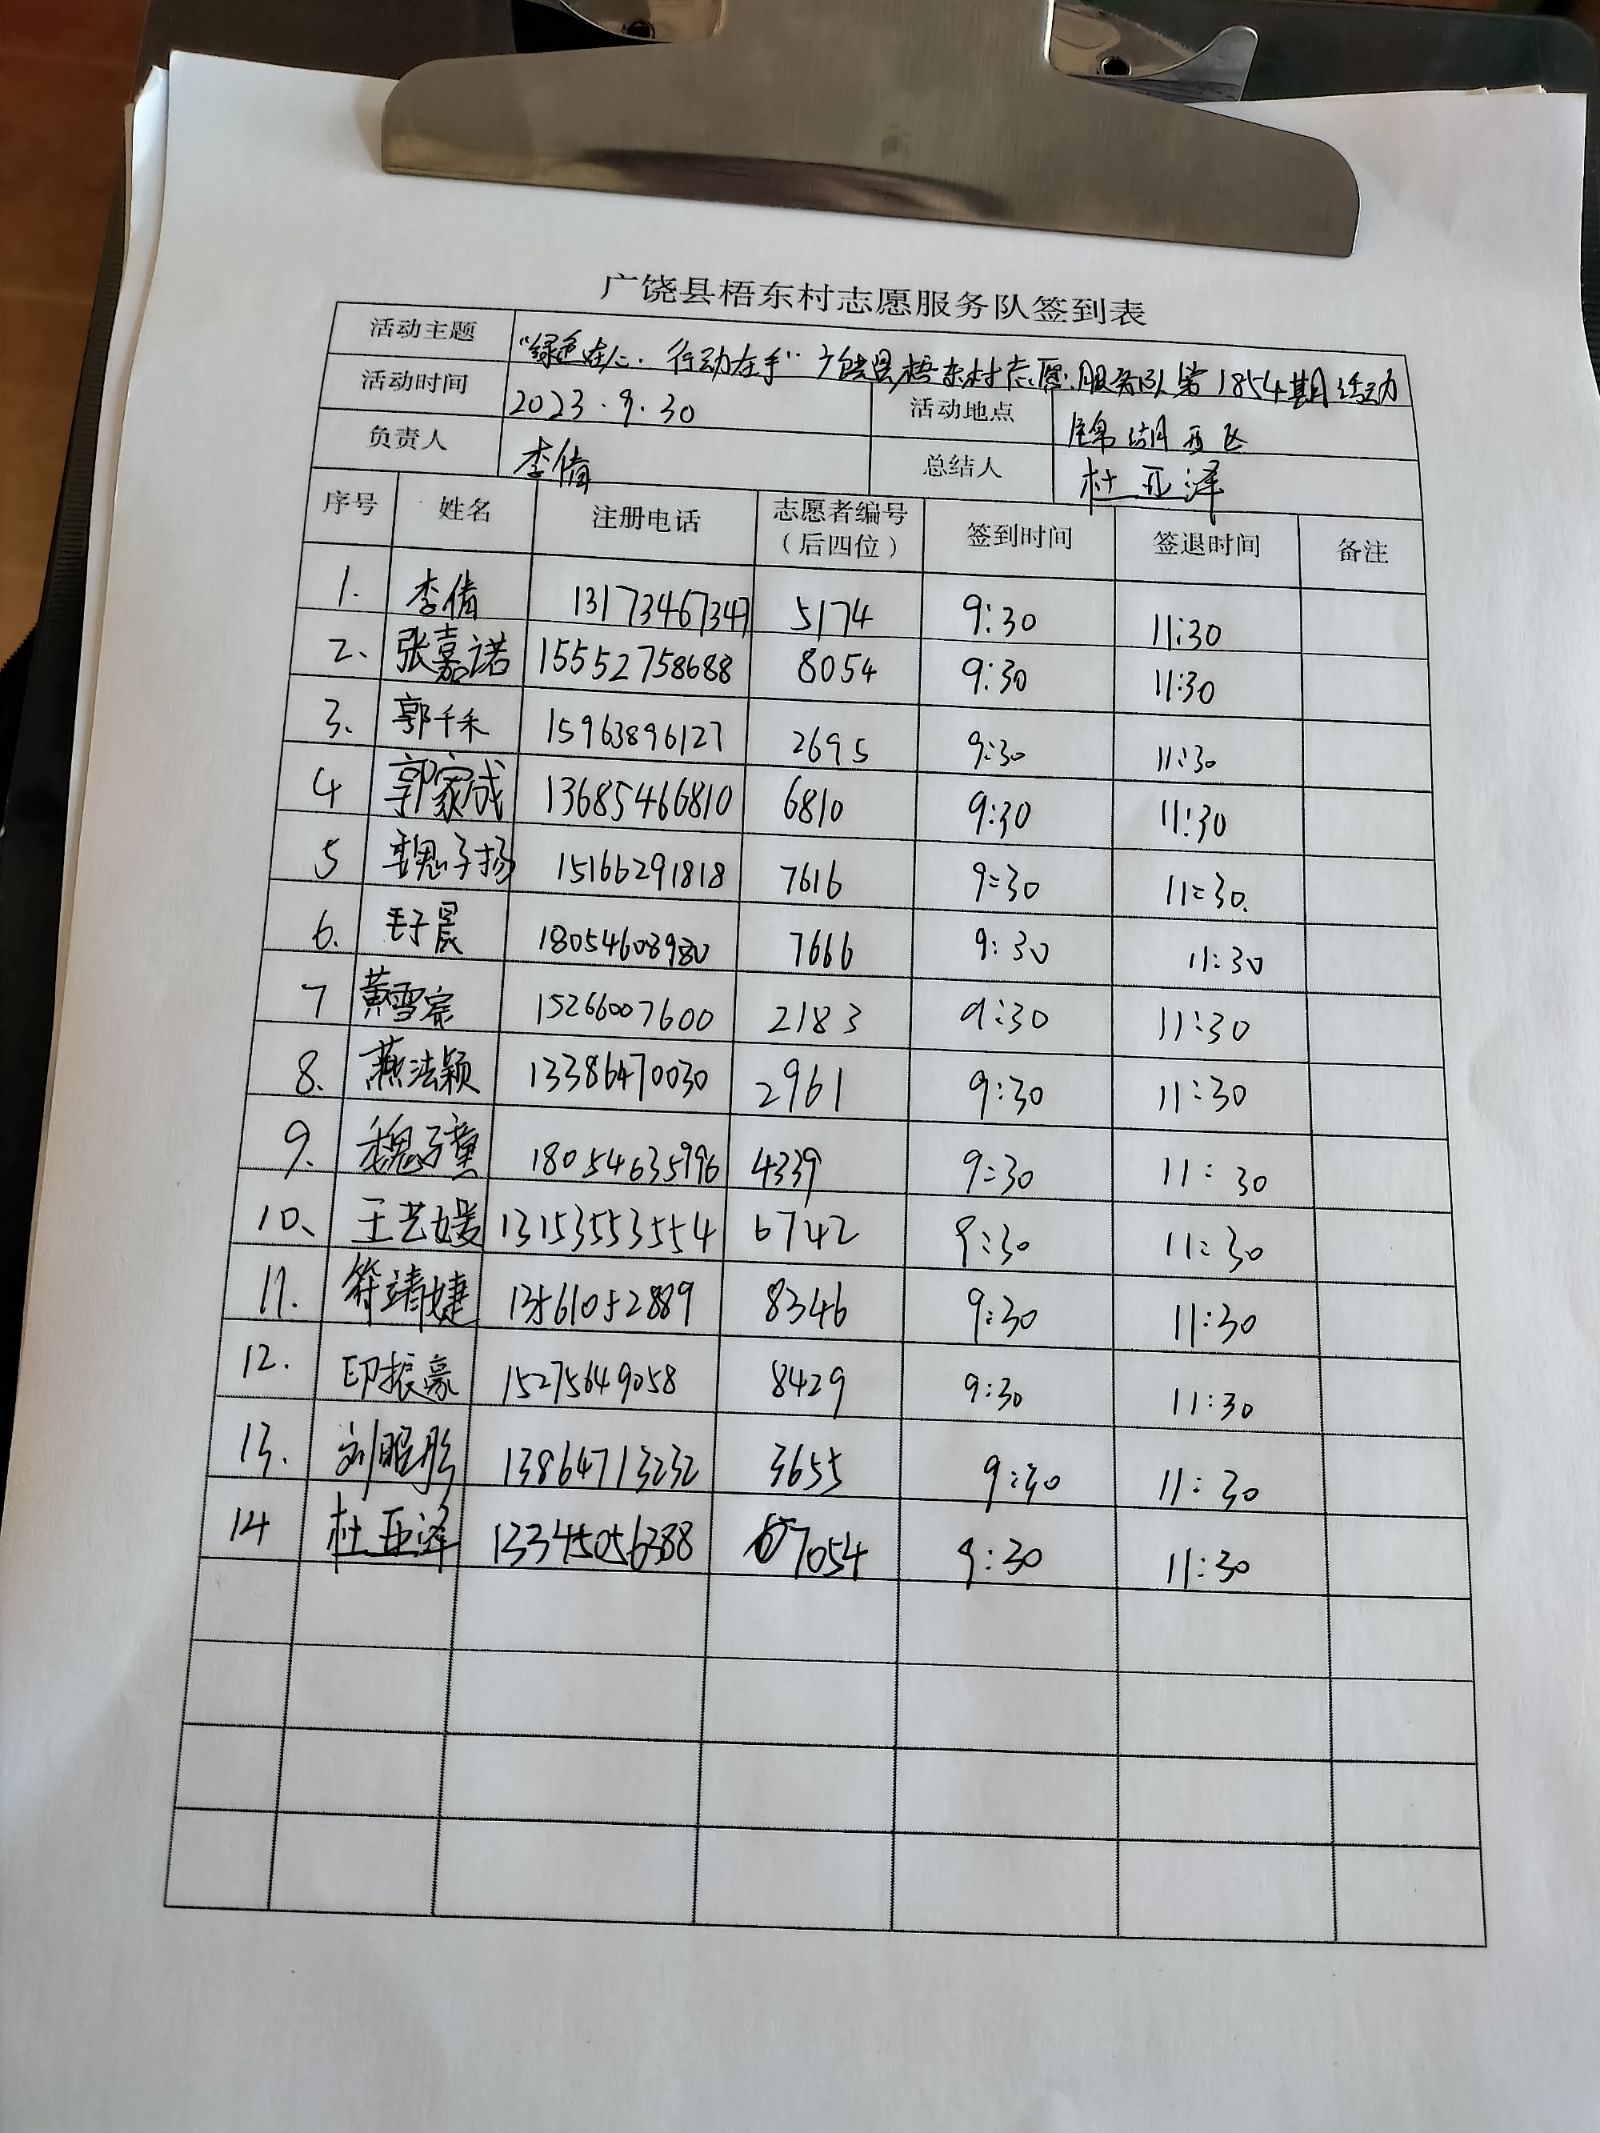 广饶县梧东村志愿服务队签到表
活动主题 "绿色在心.行动在手"广饶县梧东村志愿服务队第1854期活动
活动时间 2023.9.30 活动地点 锦湖西区
负责人 李倩 总结人 杜亚泽
序号 姓名 注册电话 志愿者编号(后四位) 签到时间 签退时间 备注
1. 李倩 13173467347 5174 9:30 11:30
2、 张嘉诺 15552758688 8054 9:30 11:30
3、 郭千禾 15963896127 2695 9:30 11:30
4 郭家成 13685466810 6810 9:30 11:30
5 魏子扬 15166291818 7616 9:30 11:30.
6. 毛子晨 18054608980 7666 9:30 11:30
7 黄雪宸 15266007600 2183 9:30 11:30
8、 燕法颖 13386470030 2961 9:30 11:30
9、 魏子骞 18054635996 4339 9:30 11:30
10、 王艺媛 13153553554 6742 9:30 11:30
11. 符靖婕 13561052889 8346 9:30 11:30
12. 印振豪 15275649058 8429 9:30 11:30
13. 刘昭彤 13864713232 3655 9:30 11:30
14 杜亚泽 13345056388 7054 9:30 11:30